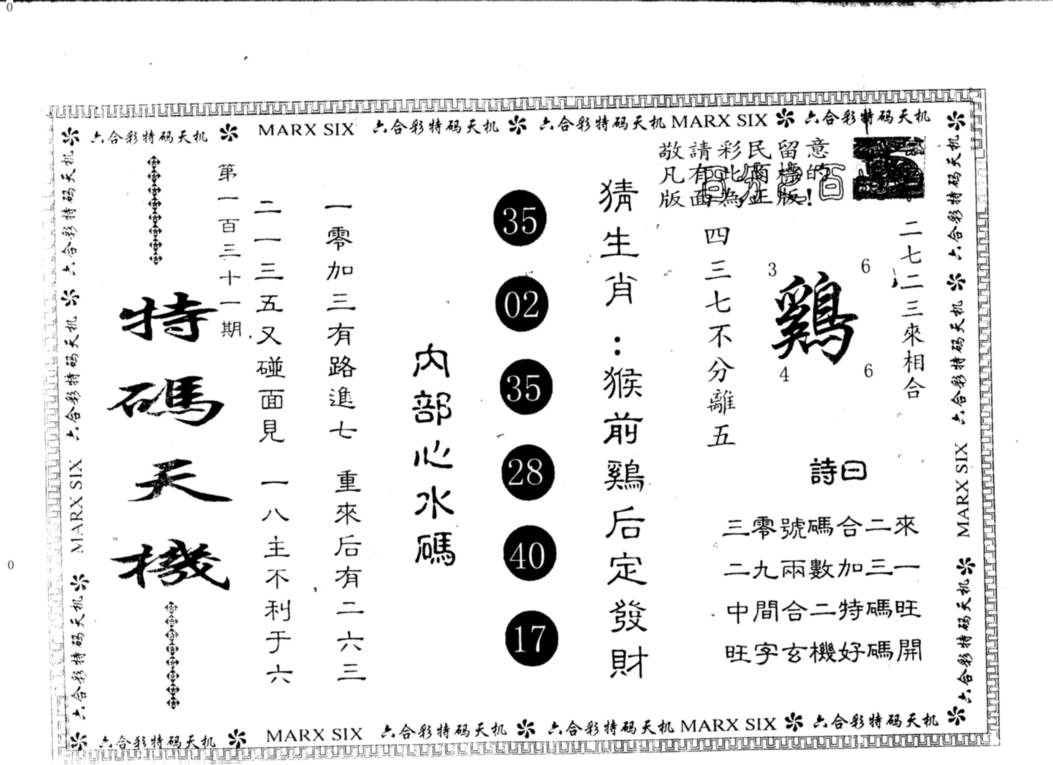 六合彩特码天机 MARX SIX 六合彩特码天机 六合彩特码天机 MARX SIX 六合彩特码天机
敬請彩民留意
凡有此商標的
版面為正版!
二七二三來相合
鷄
3
6
4
6
四三七不分離五
詩曰
三零號碼合二來
二九兩數加三一
中間合二特碼旺
旺字玄機好碼開
猜生肖:猴前鷄后定發財
35
02
35
28
40
17
內部心水碼
一零加三有路進七 重來后有二六三
二一三五又碰面見 一八主不利于六
第一百三十一期
特碼天機
六合彩特码天机 六合彩特码天机 MARX SIX 六合彩特码天机
六合彩特码天机 六合彩特码天机 MARX SIX 六合彩特码天机
六合彩特码天机 MARX SIX 六合彩特码天机 六合彩特码天机 MARX SIX 六合彩特码天机
0
0